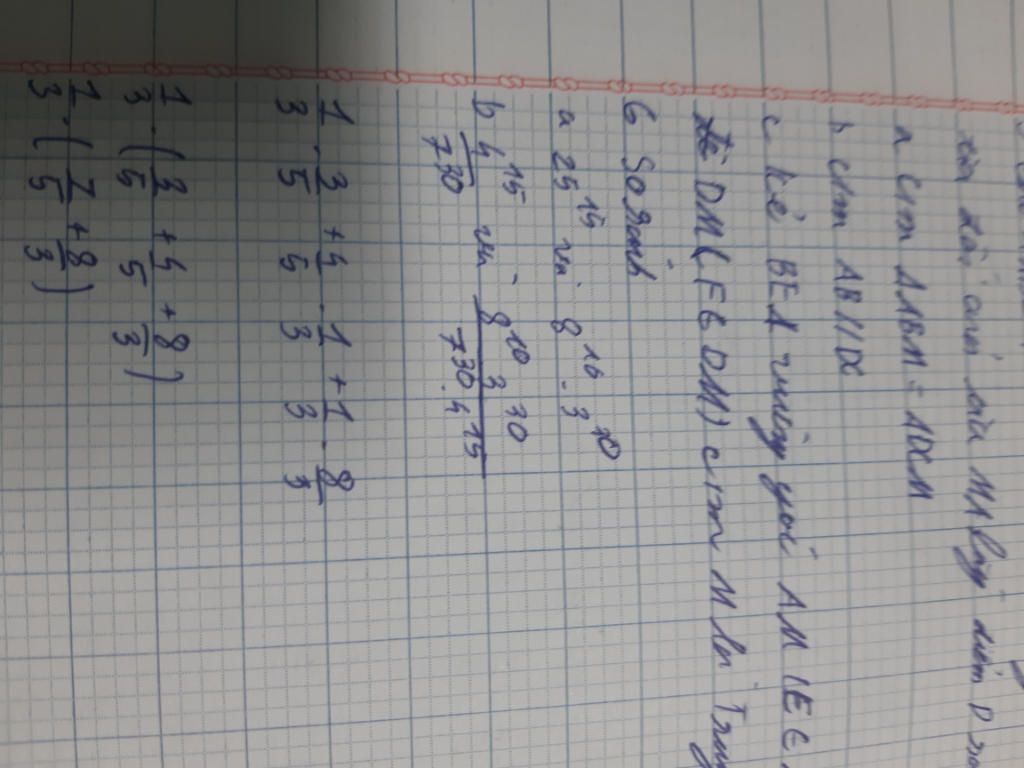 trên tia đối của tia MA lấy điểm D sao
a cm ΔABM = ΔDCM
b cm AB // DC
c kẻ BE ⊥ vuông góc AM (E ∈
DM (F ∈ DM) cm M là Trung
6 So sánh
a 25^15 và 8^10 . 3^30
b 4^15/7^30 và 8^10 3^30/7^30 . 4^15
1/3 . 3/5 + 4/5 . 1/3 + 1/3 . 8/3
1/3 . (3/5 + 4/5 + 8/3)
1/3 . (7/5 + 8/3)